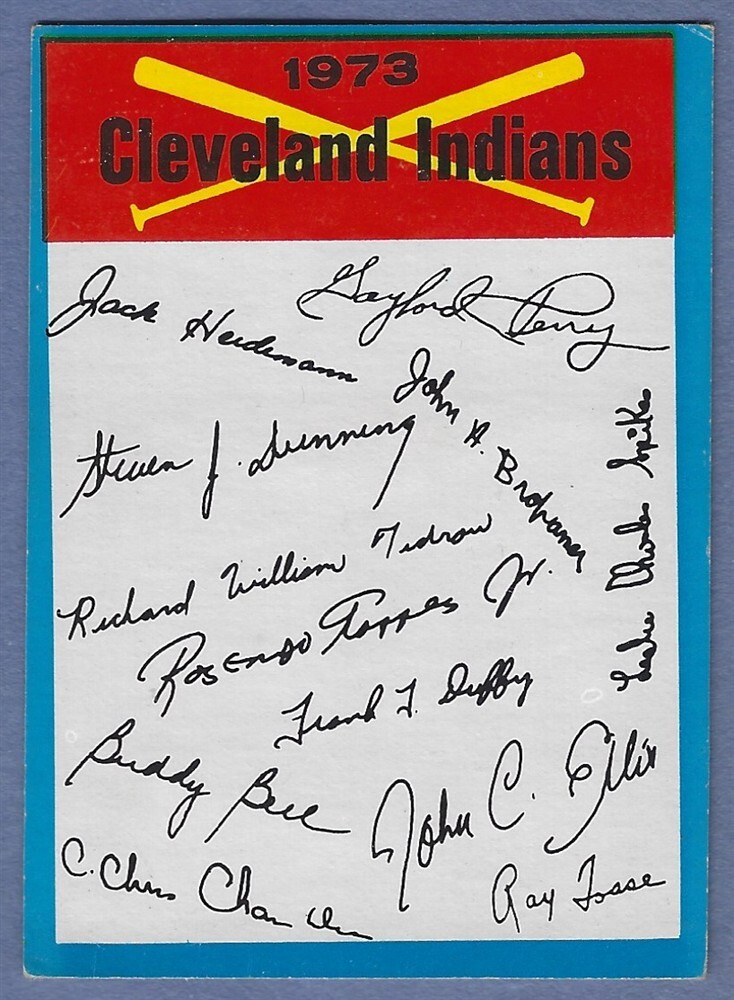 1973
Cleveland Indians
Jack Heidemann
Gaylord Perry
John A. Brohamer
Steven J. Dunning
Leslie Charles Spikes
Richard William Tidrow
Rosendo Torres Jr.
Frank T. Duffy
Buddy Bell
John C. Ellis
C. Chris Chambliss
Ray Fosse